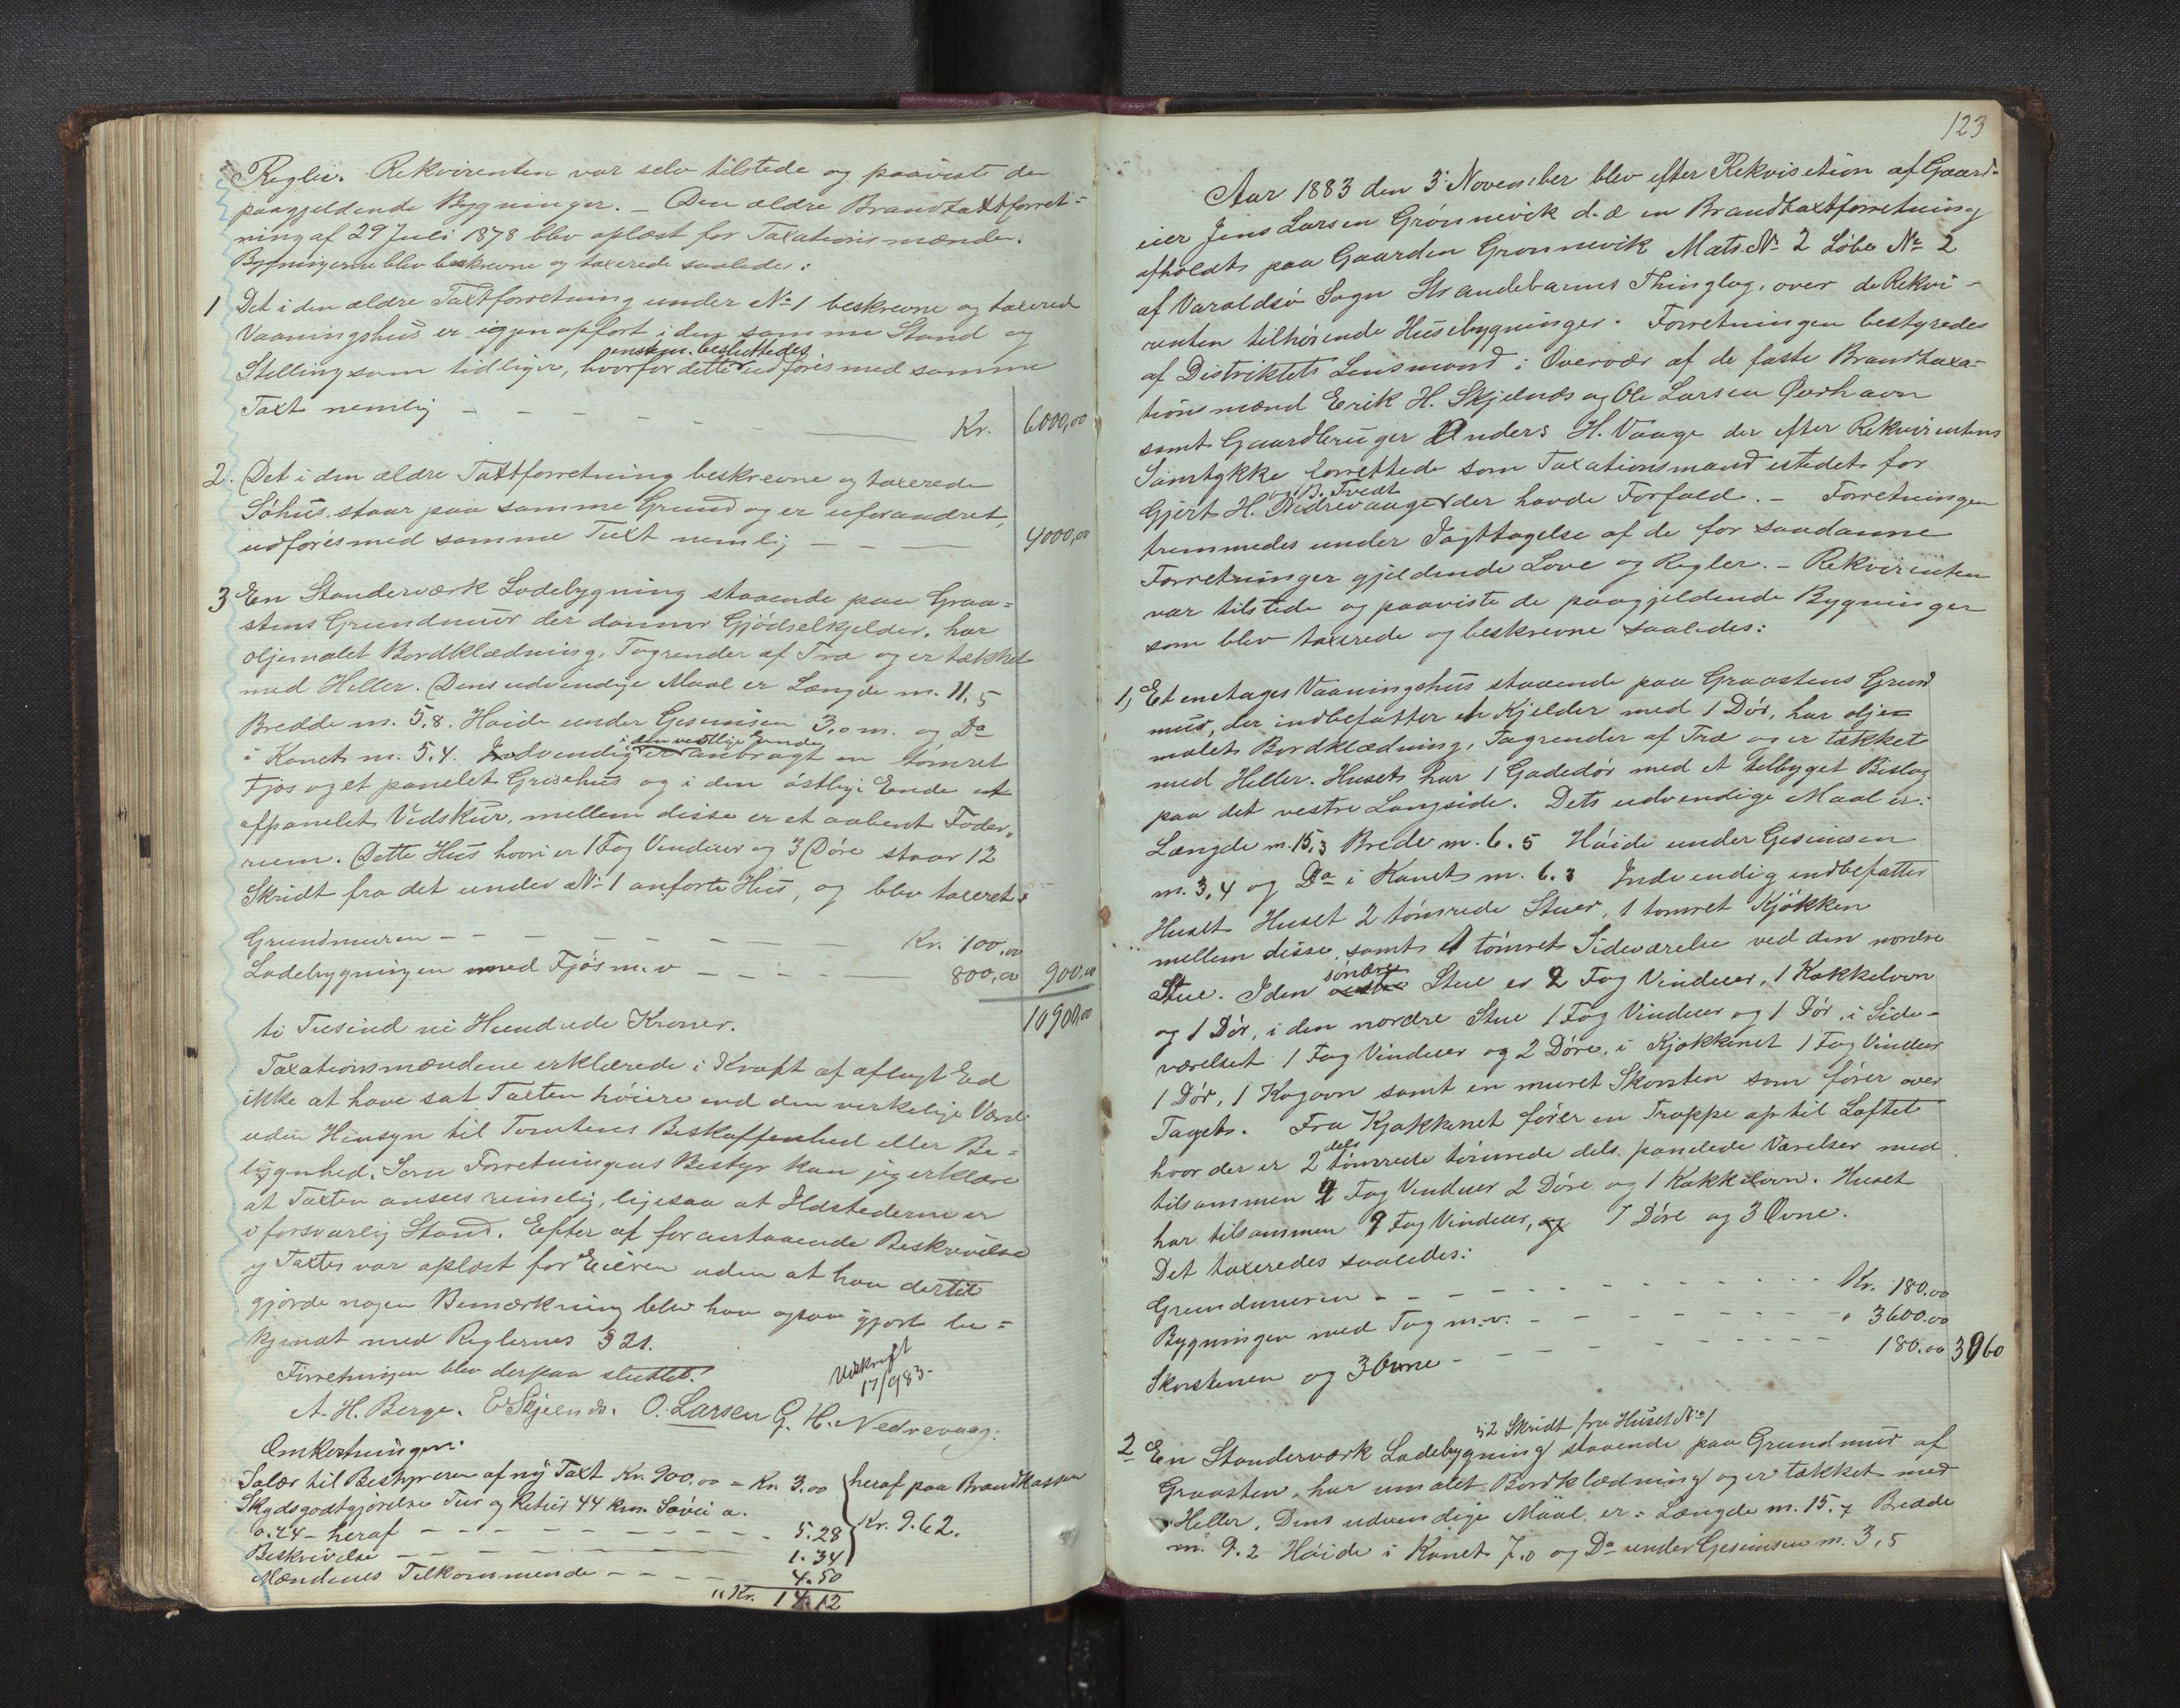 Regler. Rekvirenten var selv tilstede og paaviste de
paagjeldende Bygninger. – Den ældre Brandtaxtforret=
ning af 29 Juli 1878 blev oplæst for Taxationsmændene.
Bygningerne blev beskrevne og taxerede saaledes:
1 Det i den ældre Taxtforretning under No 1 beskrevne og taxered
Vaaningshus er igjen opført i den samme Stand og
enstem. besluttedes
Stelling som tidliger, hvorfor dette udføres med samme
Taxt nemlig – – – – – Kr. 6000,00
2. Det i den ældre Taxtforretning beskrevne og taxerede
Söhus staar paa samme Grund og er uforandret,
udføres med samme Taxt nemlig – – 4000,00
3 En Standerværk Ladebygning staaende paa Graa=
stens Grundmur der danner Gjödselkjelder, har
oljemalet Bordklædning, Tagrender af Træ og er tækket
med Heller. Dens udvendige Maal er Længde m. 11,5
Bredde m. 5,8. Høide under Gesimsen 3,0 m. og Do
i den vestlige Ende
i Kanets m. 5,4. Indvendig er anbragt en tömret
Fjøs og et panelet Grisehus og i den östlige Ende et
afpanelet Vedskur, mellem disse er et aabent Foder=
rum. Dette Hus hvori er 1 Fag Vinduer og 3 Døre staar 12
Skridt fra det under No 1 anførte Hus, og blev taxeret:
Grundmuren – – – – – – Kr. 100,00
Ladebygningen med Fjös m.v – – – – 800,00 900,00
ti Tusind ni Hundrede Kroner. 10900,00
Taxationsmændene erklærede i Kraft af aflagt Eed
ikke at have sat Taxten høiere end den virkelige Værdi
uden Hensyn til Tomtens Beskaffenhed eller Be=
liggenhed. Som Forretningens Bestyr. kan jeg erklære
at Taxten ansees rimelig, ligesaa at Ildstederne er
i forsvarlig Stand. Efter af foranstaaende Beskrivelse
og Taxter var oplæst for Eieren uden at han dertil
gjorde nogen Bemærkning blev han ogsaa gjort be=
kjendt med Reglernes § 21.
Forretningen blev derpaa sluttet.
Udskrift
17/9 83.
A. H. Berge. E Skjelnæs. O. Larsen G. H. Nedrevaag.
Omkostninger:
Salær til Bestyreren af ny Taxt Kr. 900,00 = Kr. 3.00 heraf paa Brandkassen
Skydsgodtgjörelse Tur og Retur 44 km. Søvei a.
0.24 – heraf – – – – 5.28 Kr. 9.62.
Beskrivelse – – – – 1.34
Mændenes Tilkommende – – – 4.50
Kr. 14.12
123
Aar 1883 den 3. November blev efter Rekvisition af Gaard-
eier Jens Larsen Grønnevik d.æ en Brandtaxtforretning
afholdt paa Gaarden Grønnevik Mats. No 2 Løbe No 2
af Varaldsö Sogn Strandebarms Thinglag, over de Rekvi-
renten tilhørende Husebygninger. Forretningen bestyredes
af Distriktets Lensmand i Overvær af de faste Brandtaxa-
tionsmænd Erik H. Skjelnæs og Ole Larsen Øvrhavn
samt Gaardbruger Anders H. Vaage der efter Rekvirentens
Samtykke forrettede som Taxationsmand istedet for
og B. Tvedt
Gjert H. Nedrevaage der havde Forfald. – Forretningen
fremmedes under Iagttagelse af de for saadanne
Forretninger gjeldende Love og Regler. – Rekvirenten
var tilstede og paaviste de paagjeldende Bygninger
som blev taxerede og beskrevne saaledes:
1, Et enetages Vaaningshus staaende paa Graastens Grund
mur, der indbefatter en Kjelder med 1 Dør, har olje=
malet Bordklædning, Tagrender af Træ og er tækket
med Heller. Huset har 1 Gadedør med et tilbygget Bislag
paa det vestre Langside. Dets udvendige Maal er:
Længde m. 15,3 Brede m. 6.5 Høide under Gesimsen
m. 3,4 og Do i Kanets m. 6.3 Indvendig indbefatter
Huset Huset 2 tömrede Stuer, 1 tomret Kjökken
mellem disse, samt 1 tömret Sideværelse ved den nordre
søndre
Stue. I den vestre Stue er 2 Fag Vinduer, 1 Kakkelovn
og 1 Dør, i den nordre Stue 1 Fag Vinduer og 1 Dör, i Side-
værelset 1 Fag Vinduer og 2 Døre, i Kjøkkenet 1 Fag Vinduer
1 Dør, 1 Kogovn samt en muret Skorsten som fører over
Taget. Fra Kjøkkenet fører en Trappe op til Loftet
dels
hvor der er 2 tömrede tömrede dels panelede Værelser med
tilsammen 4 Fag Vinduer 2 Döre og 1 Kakkelovn. Huset
har tilsammen 9 Fag Vinduer, og 7 Døre og 3 Ovne.
Det taxeredes saaledes:
Grundmuren – – – – – – Kr. 180.00
Bygningen med Tag m.v. – – – – " 3600.00
Skorstenen og 3 Ovne – – – – 180.00 3960
52 Skridt fra Huset No 1
2 En Standerværk Ladebygning staaende paa Grundmur af
Graasten, har umalet Bordklædning og er tækket med
Heller. Dens udvendige Maal er: Længde m. 15.7 Bredde
m. 9.2 Høide i Kanet 7.0 og Do under Gesimsen m. 3,5